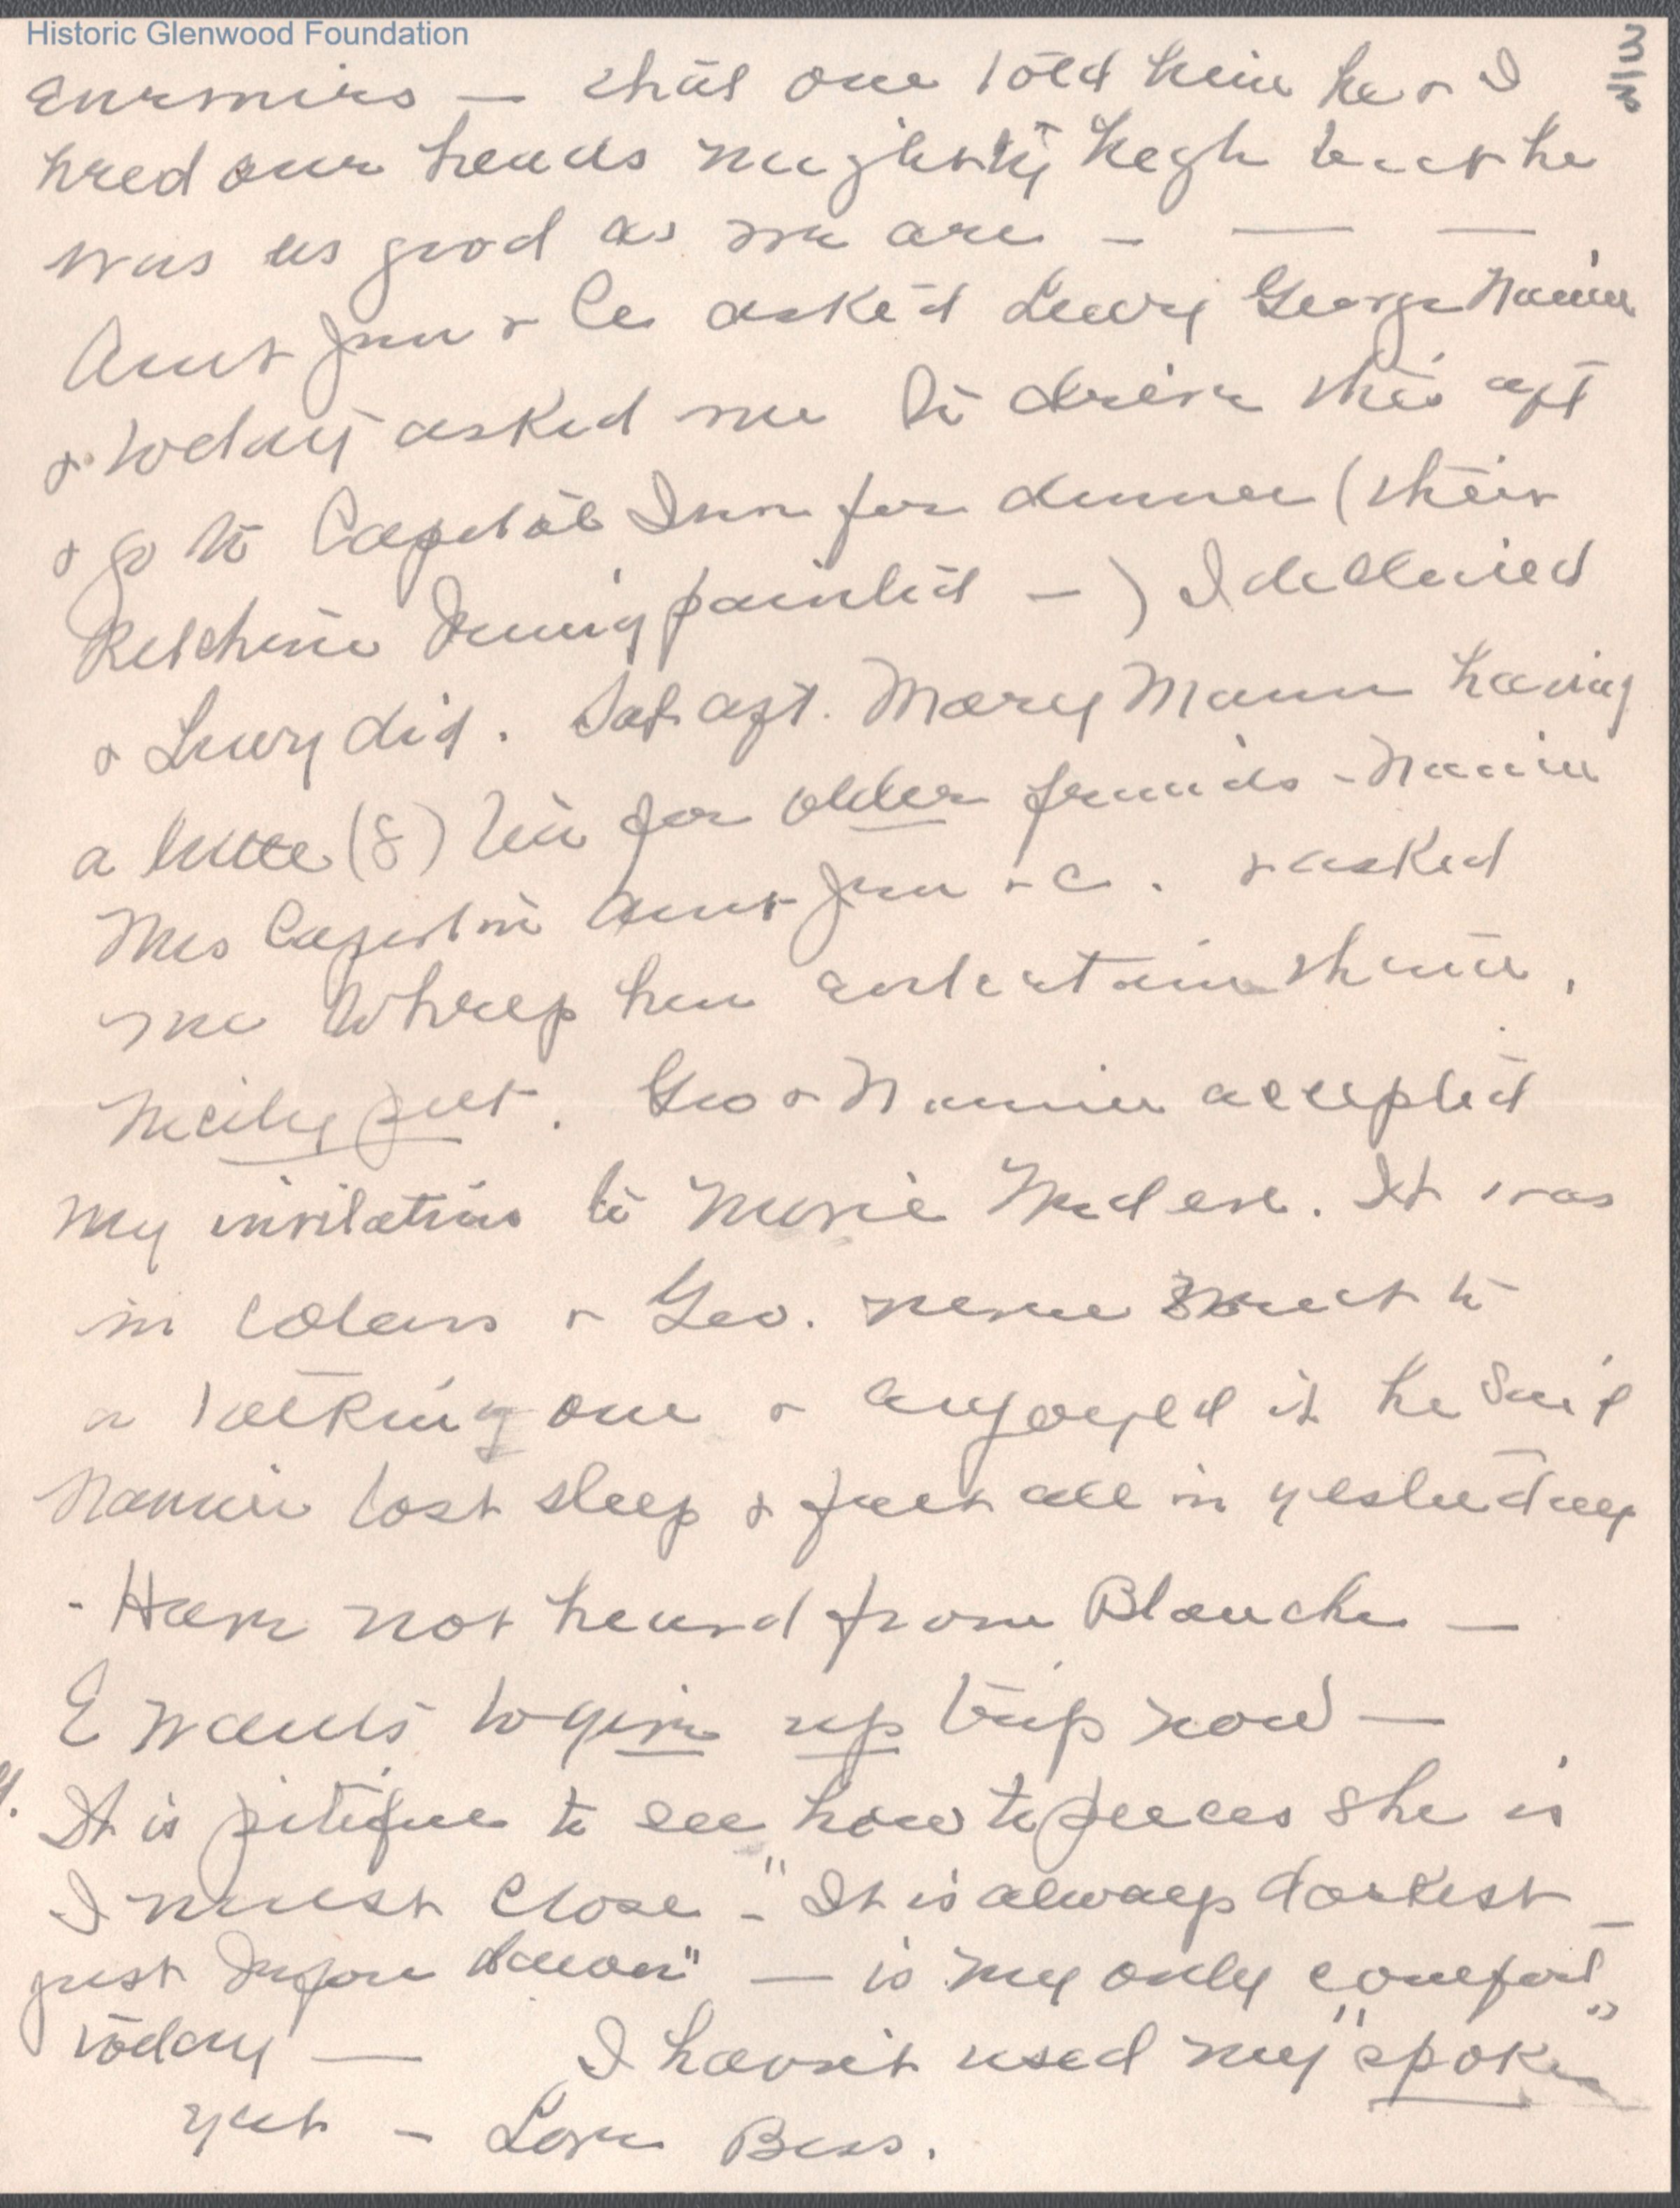 Historic Glenwood Foundation
3/3
enemies — that one told him he & I
hred our heads mighty high but he
was as good as we are — — —
Aunt Jen & Ce asked Lucy George Nannie
& today asked me to drive this aft
& go to Capitol Inn for dinner (their
Kitchen being painted —) I declined
& Lucy did. Sat aft. Mary Mann having
a little (8) tea for older friends - Nannie
Mrs Aunt Jen & C. & asked
me to help her entertain them.
put. Geo & Nannie accepted
my invitation to Movie Wed eve. It was
in colors & Geo. never went to
a talking one & enjoyed it he said
Nannie lost sleep & felt all in yesterday
- Have not heard from Blanche —
E wants to give up trip now —
It is pitiful to see how to pieces she is
I must close - "It is always darkest
just before dawn" — is my only comfort
today — I havn't used my "spoke"
yet - Love Bess.